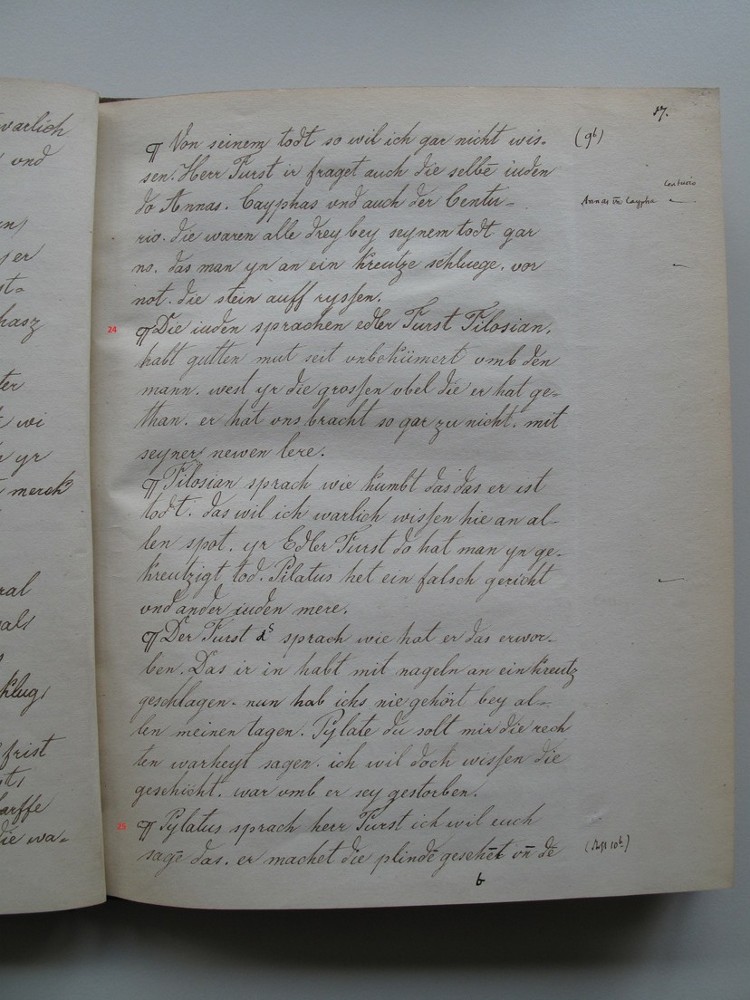 17.
¶ Von seinem todt so wil ich gar nicht wis-
(9b)
sen. Herr Furst ir fraget auch die selbe iuden
do Annas. Cayphas vnd auch der Centu-
Centurio
Annas vn Cayphe
rio. die waren alle drey bey seynem todt gar
no. das man yn an ein kreutze schluege. vor
not. die stein auff ryssen.
24 ¶ Die iuden sprachen edler Furst Tilosian.
habt gutten mut seit vnbekümert vmb den
mann. west yr die grossen vbel die er hat ge-
than. er hat vns bracht so gar zu nicht. mit
seyner newen lere.
¶ Tilosian sprach wie kumbt das das er ist
todt. das wil ich warlich wissen hie an al-
len spot. yr Edler Furst do hat man yn ge-
kreutzigt tod. Pilatus het ein falsch gericht
vnd ander iuden mere.
¶ Der Furst sprach wie hat er das erwor-
ben. Das ir in habt mit nageln an ein kreutz
geschlagen. nun hab ichs nie gehört bey al-
len meinen tagen. Pylate du solt mir die rech
ten warheyt sagen. ich wil doch wissen die
geschicht. war vmb er sey gestorben.
25 ¶ Pylatus sprach herr Furst ich wil euch
sagē das. er machet die plindē gesehēt vn̄ dē
b
warlich
vnd
er
st-
hasz
ter
wi
yr
merck
ral
als
schlug
frist
scharffe
die wa-